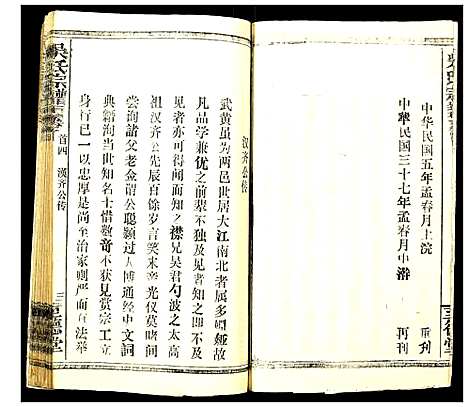 中華民國五年孟春月上浣 重刋
中華民國三十七年孟春月中澣 再刊
三讓堂
吳氏宗譜
首四 漢齊公传
汉齐公传
武黄虽为两邑世居大江南北者属多姻娅故
凡品学兼优之前辈不独及见者知之即不及
见者亦可得闻而知之襟兄吴君勺波之太高
祖汉齐公先辰百馀岁言笑来音光仪莫睹间
尝询诸父老佥谓公聪颖过人博通经史文词
典雅洵当世知名士惜数奇不获见赏宗工立
身行已一以忠厚是尚至治家则严而有法举